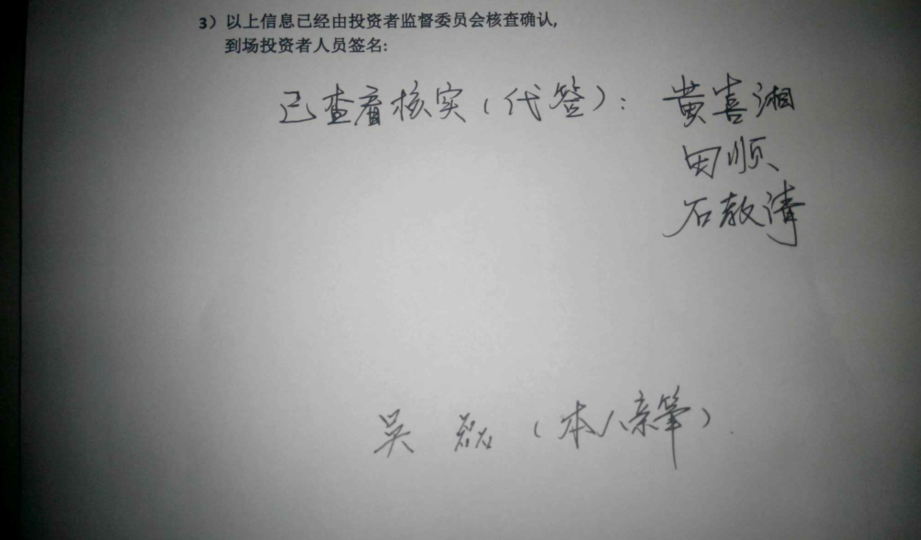 3）以上信息已经由投资者监督委员会核查确认,
到场投资者人员签名:
已查看核实（代签）: 黄喜湘
田顺
石教清
吴磊（本人亲笔）.